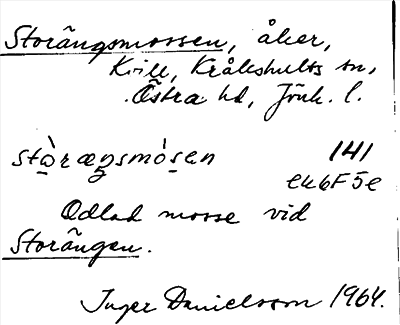 Storängsmossen, åker,
Kvill, Kråkshults sn,
Östra hd, Jönk. l.
stò̱ræŋsmò̱sen 141
ek6F5e
Odlad mosse vid
Storängen.
Inger Danielsson 1964.